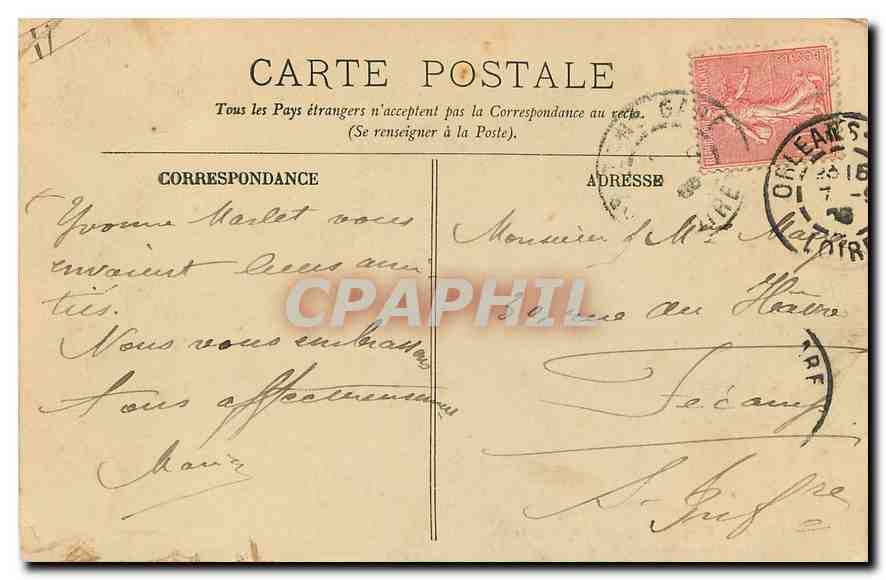 CARTE POSTALE
Tous les Pays étrangers n'acceptent pas la Correspondance au recto.
(Se renseigner à la Poste).
CORRESPONDANCE
ADRESSE
Yvonne Marlet vous
envoient leurs ami
tiés.
Nous vous embrassons
tous affectueusement
Maria
Monsieur & Me
rue du Hâvre
Fécamp
S- Infre
ORLEANS
LOIRE
GARE
CPAPHIL